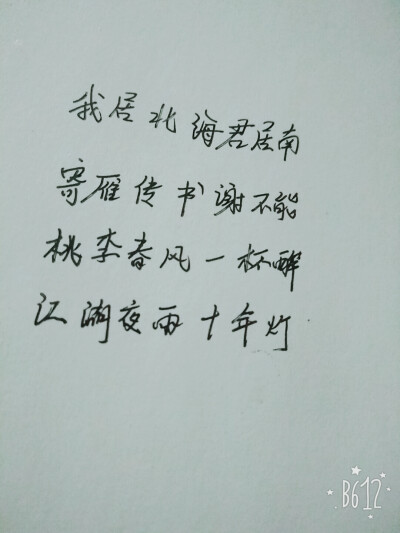 我居北海君居南
寄雁传书谢不能
桃李春风一杯醉
江湖夜雨十年灯
B612